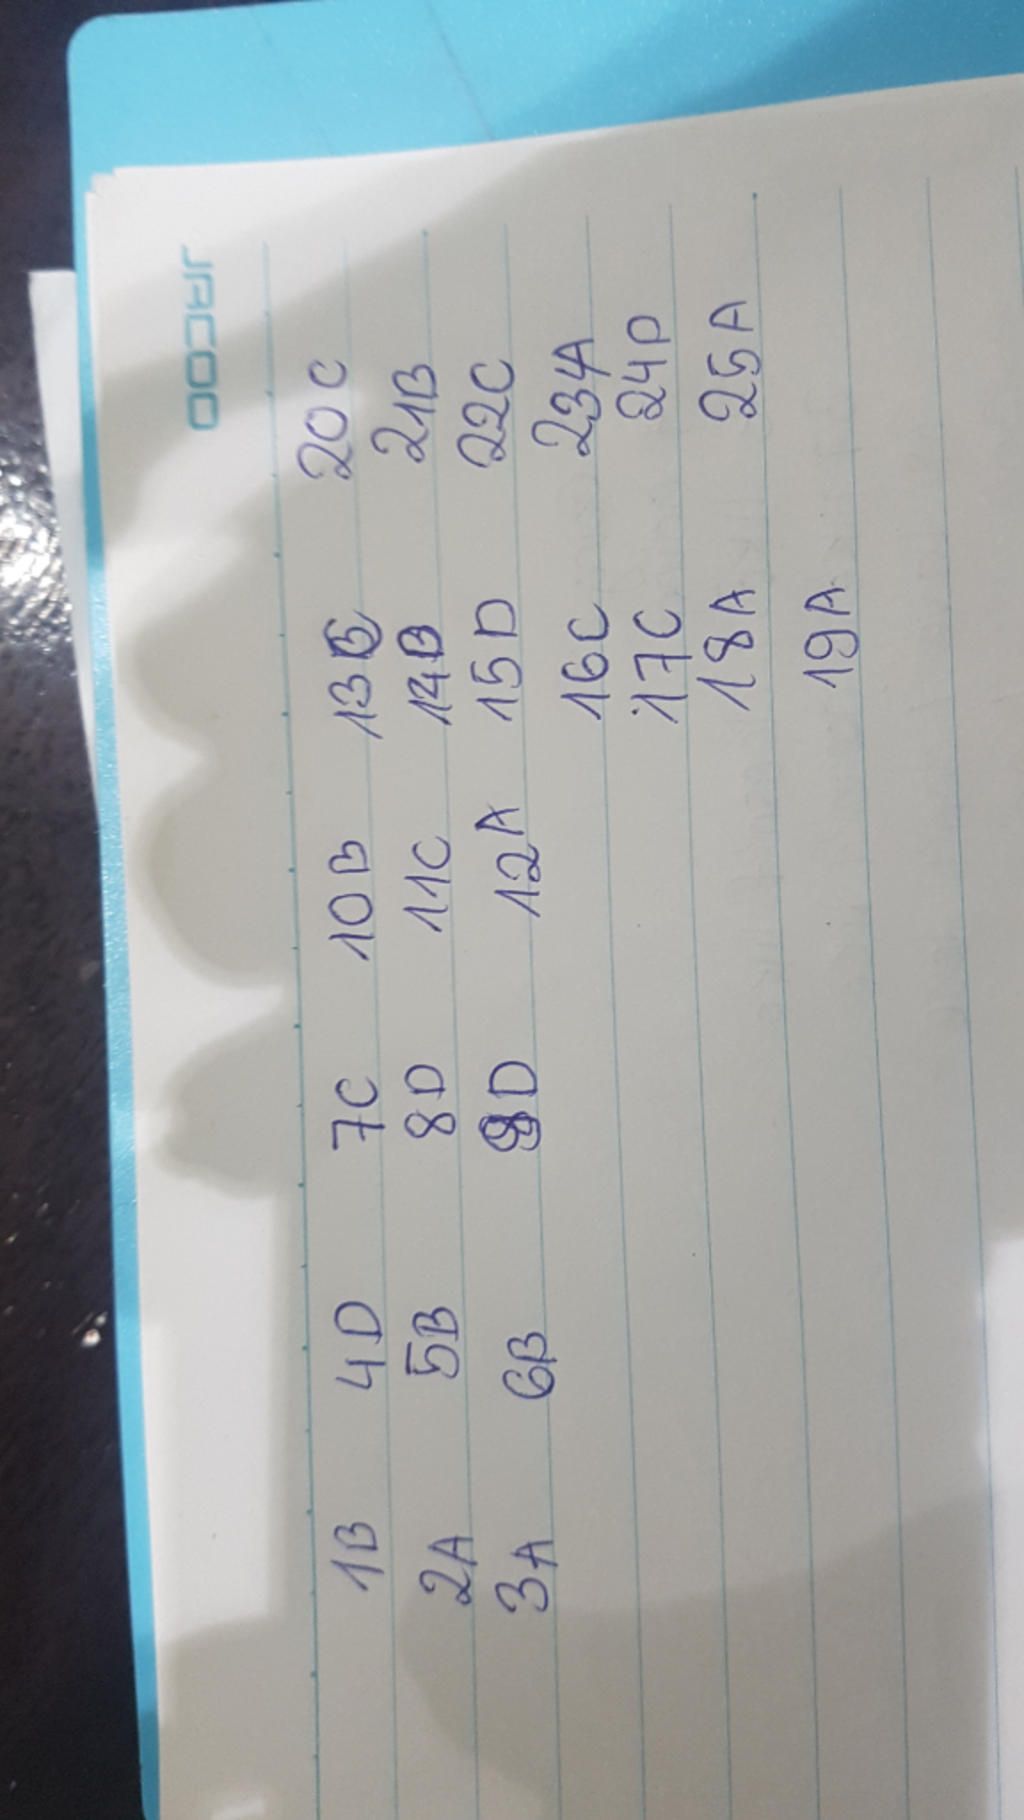 JACOO
1B 4D 7C 10B 13B 20C
2A 5B 8D 11C 14B 21B
3A 6B 9D 12A 15D 22C
16C 23A
17C 24D
18A 25A
19A